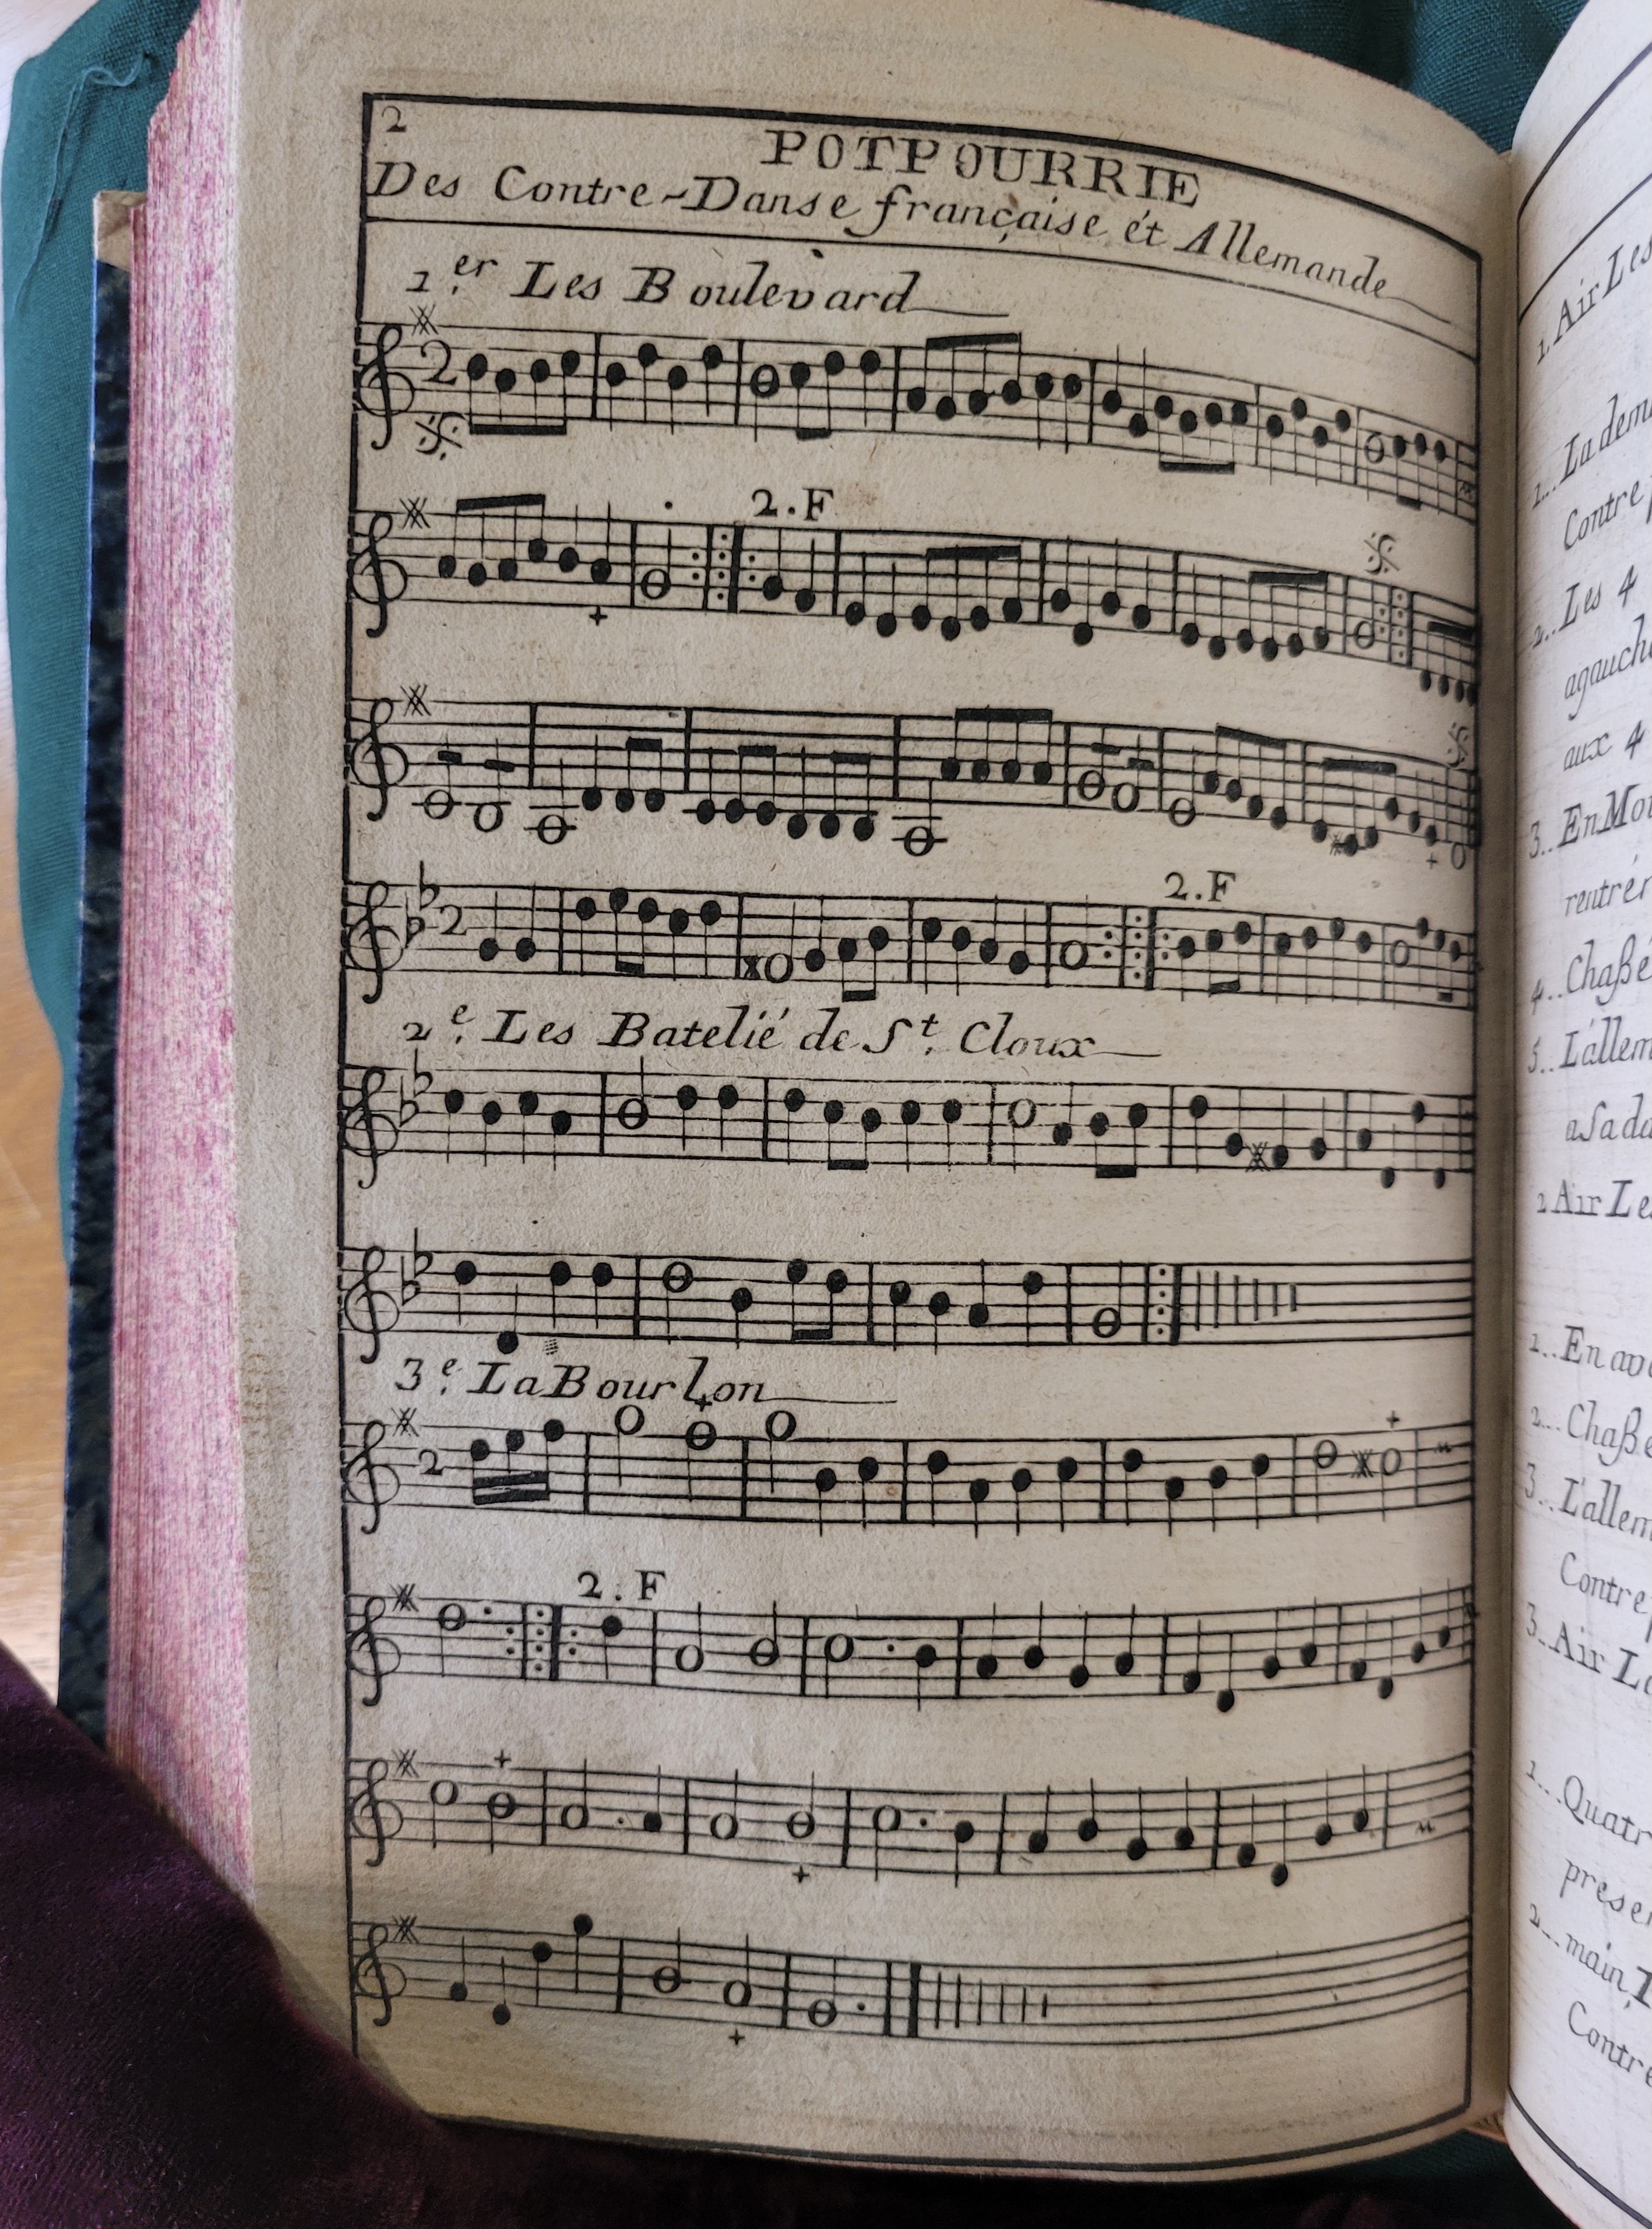 2
POTPOURRIE
Des Contre-Danse française ét Allemande
1.er Les Boulevard
2
2.F
2.F
2
2.e Les Batelié de St. Cloux
3.e La Bourlon
2
2.F
1. Air Les
1... La dem
Contre
2.. Les 4
agauch
aux 4
3.. En Mou
rentrér
4.. Chaße
5.. L'allem
a sa da
2 Air Le
1.. En ava
2... Chaße
3... L'allem
Contre
3.. Air La
1... Quatr
presen
2... main,
Contre